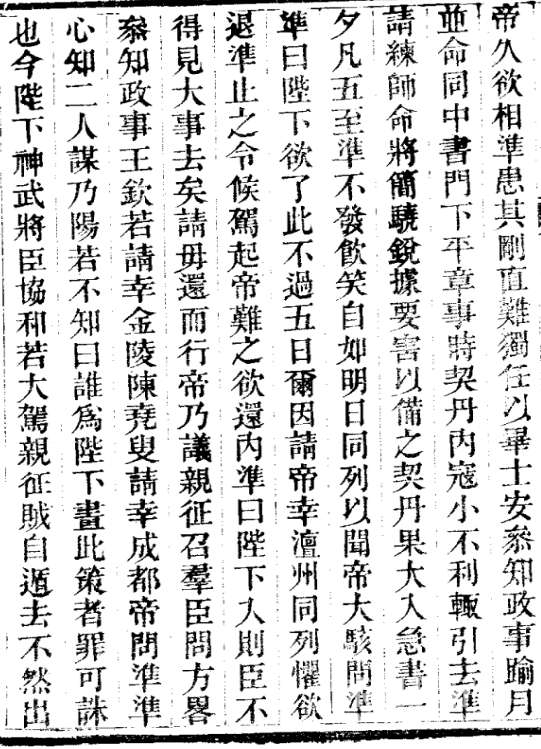 帝久欲相準患其剛直難獨任以畢士安叅知政事踰月
並命同中書門下平章事時契丹內寇小不利輙引去準
請練師命將簡驍銳據要害以備之契丹果大入急書一
夕凡五至準不發飮笑自如明日同列以聞帝大駭問準
準曰陛下欲了此不過五日爾因請帝幸澶州同列懼欲
退準止之令候駕起帝難之欲還內準曰陛下入則臣不
得見大事去矣請毋還而行帝乃議親征召羣臣問方畧
叅知政事王欽若請幸金陵陳堯叟請幸成都帝問準準
心知二人謀乃陽若不知曰誰爲陛下畫此策者罪可誅
也今陛下神武將臣協和若大駕親征賊自遁去不然出